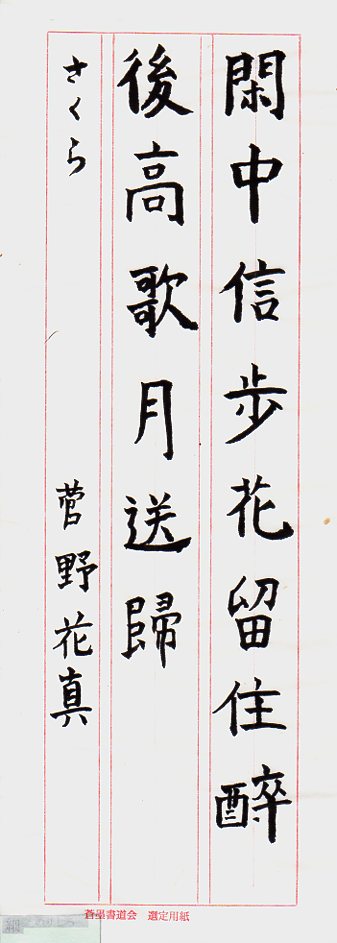 閑中信歩花留住醉
後高歌月送歸
さくら　菅野花真
蒼墨書道会　選定用紙